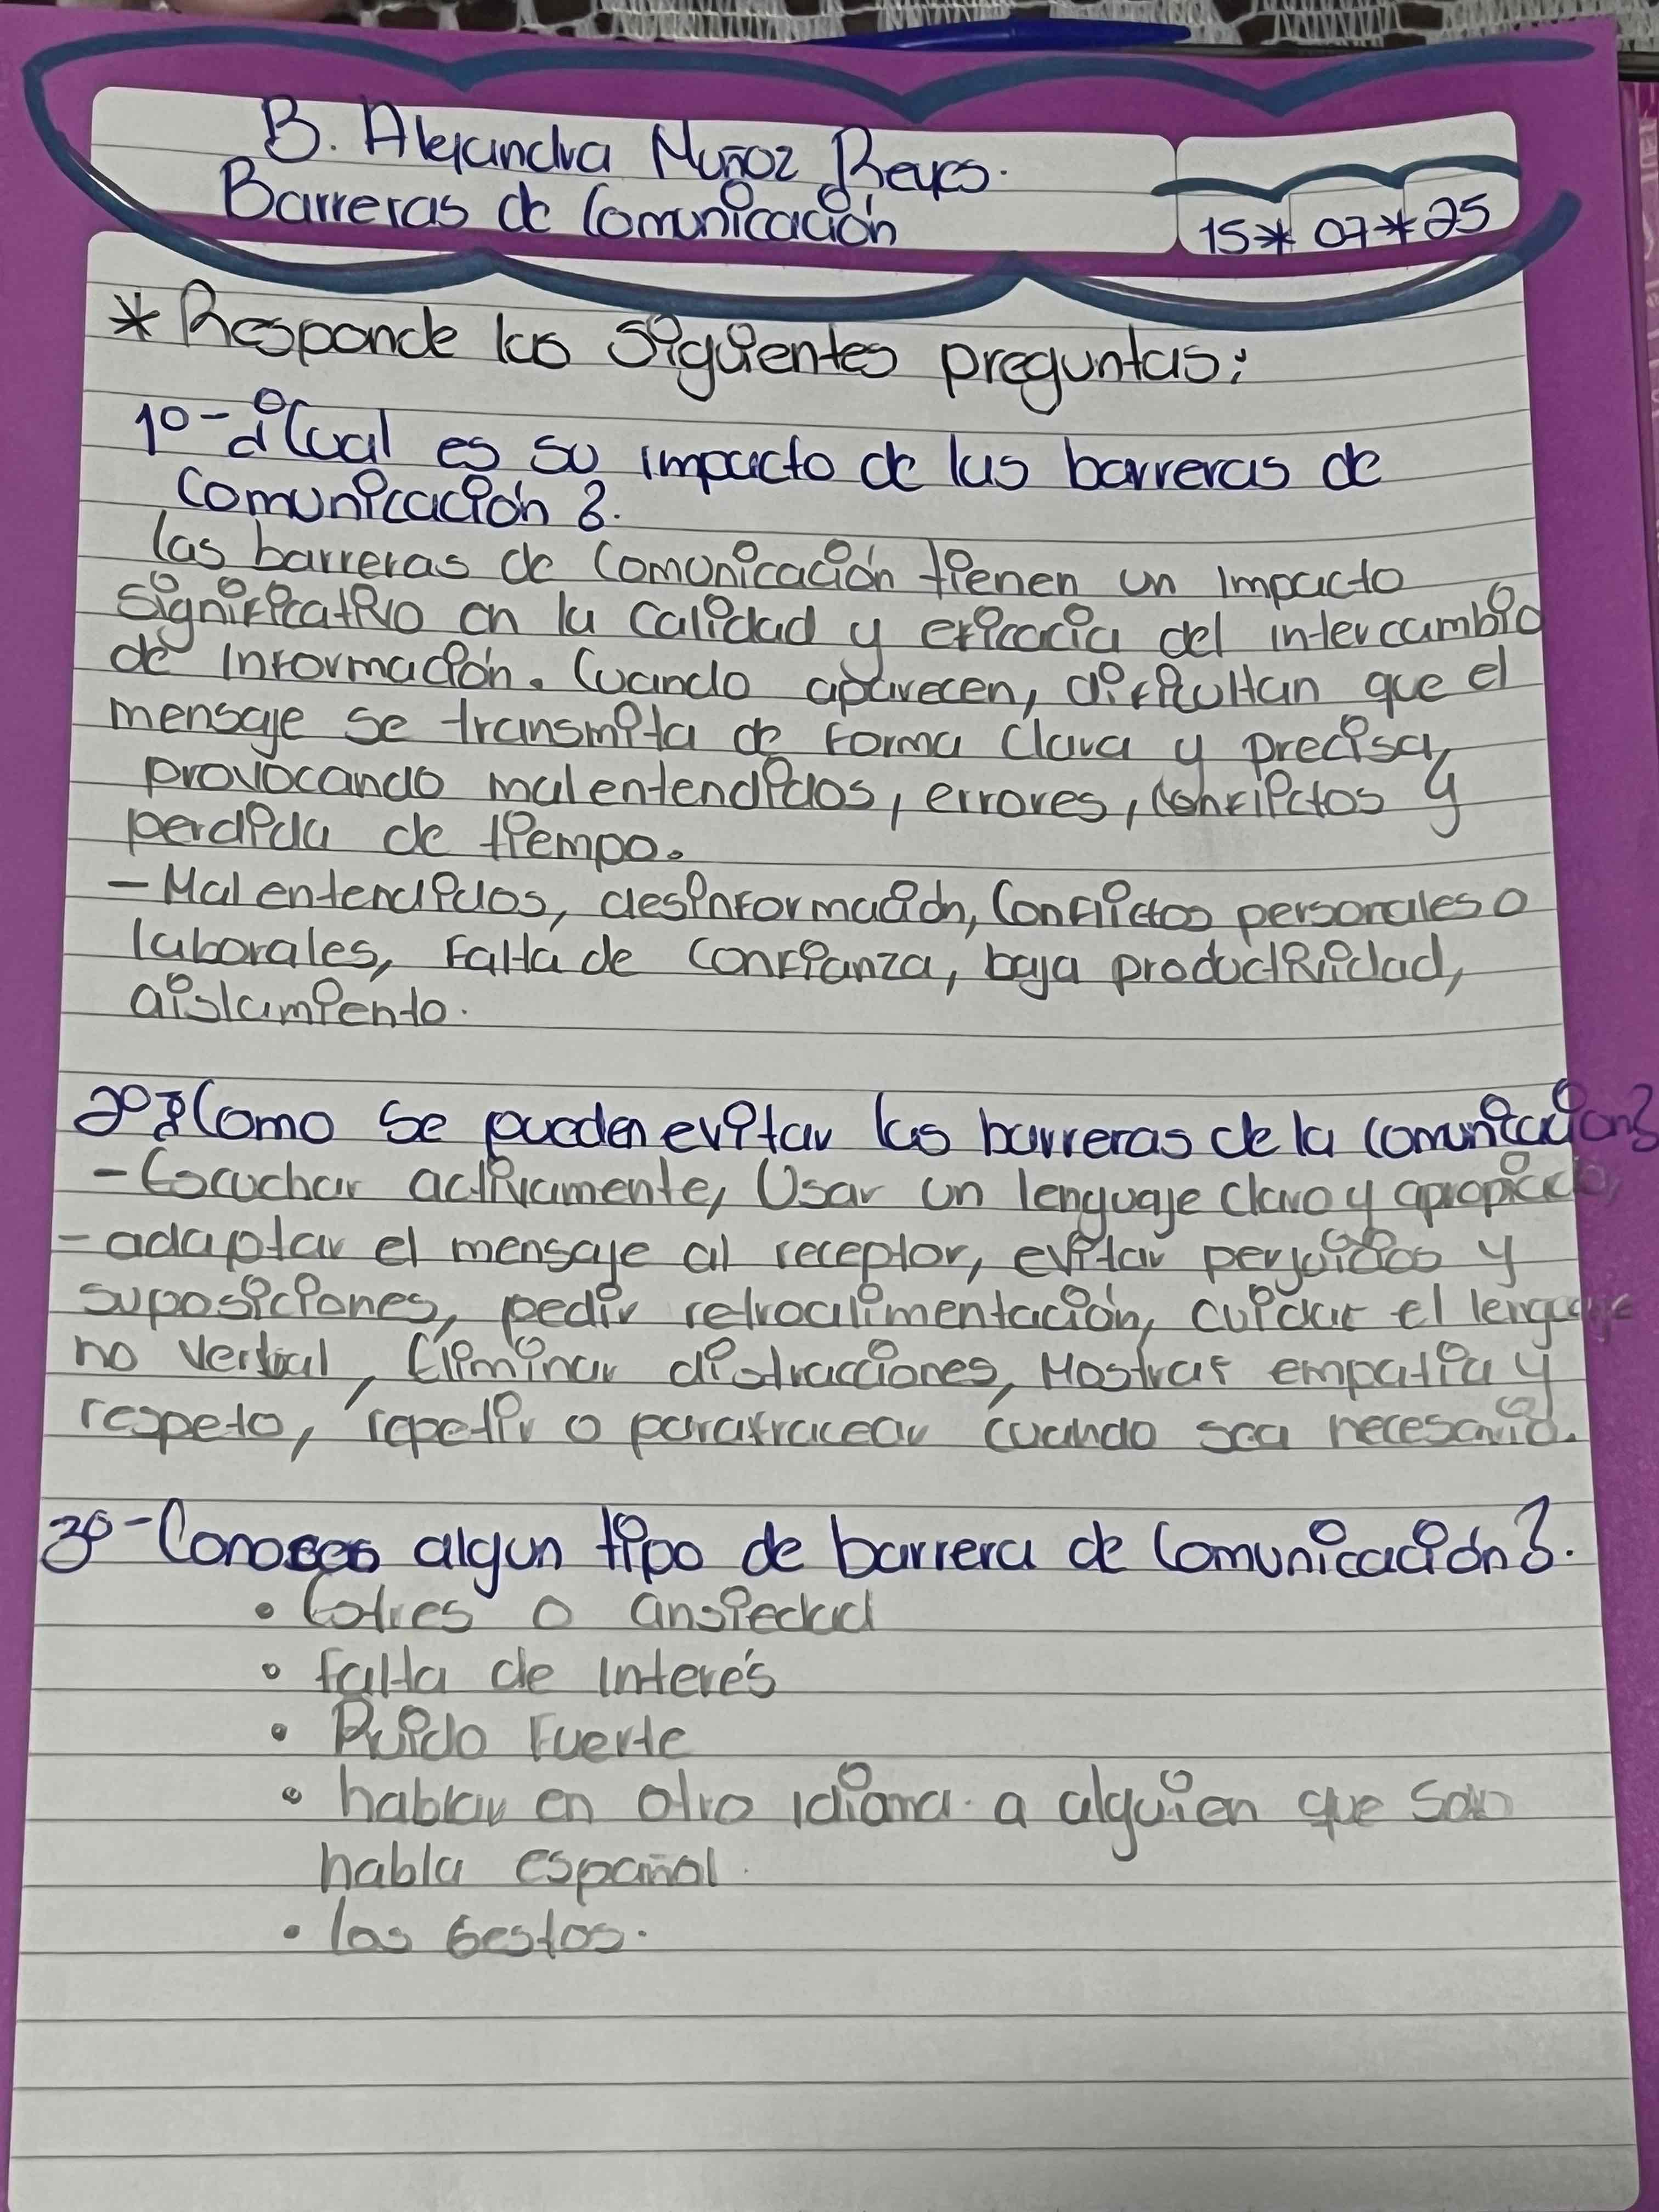 B. Alejandra Muñoz Reyes.
Barreras de Comunicación
15* 07* 25
* Responde las siguientes preguntas:
1º- ¿Cual es su impacto de las barreras de
Comunicación?.
las barreras de Comunicación tienen un impacto
significativo en la calidad y eficacia del intercambio
de información. Cuando aparecen, dificultan que el
mensaje se transmita de forma clara y precisa,
provocando malentendidos, errores, conflictos y
perdida de tiempo.
- Malentendidos, desinformación, Conflictos personales o
laborales, Falta de confianza, baja productividad,
aislamiento.
2º ¿Como se pueden evitar las barreras de la comunicación?
- Escuchar activamente, Usar un lenguaje claro y apropiado,
- adaptar el mensaje al receptor, evitar perjuicios y
suposiciones, pedir retroalimentación, cuidar el lenguaje
no verbal, Eliminar distracciones, Mostrar empatia y
respeto, repetir o parafracear cuando sea necesario.
3º- Conoces algun tipo de barrera de Comunicación?.
• Estres o ansiedad
• falta de Interés
• Ruido Fuerte
• hablar en otro idioma a alguien que solo
habla español.
• los Gestos.